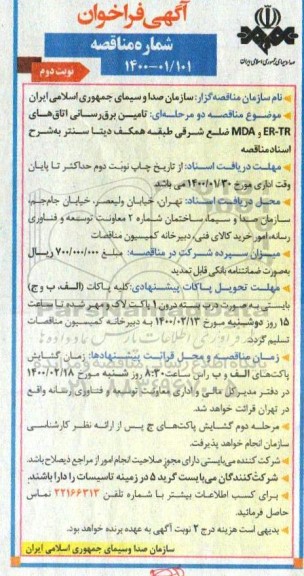 آگهی فراخوان
شماره مناقصه
۱۴۰۰-۰۱/۱۰۱
نوبت دوم
نام سازمان مناقصه‌گزار: سازمان صدا و سیمای جمهوری اسلامی ایران
موضوع مناقصه دو مرحله‌ای: تامین برق‌رسانی اتاق‌های
ER-TR و MDA ضلع شرقی طبقه همکف دیتا سنتر به‌شرح
اسناد مناقصه
مهلت دریافت اسناد: از تاریخ چاپ نوبت دوم حداکثر تا پایان
وقت اداری مورخ ۱۴۰۰/۰۱/۳۰ می باشد
محل دریافت اسناد: تهران، خیابان ولیعصر، خیابان جام‌جم،
سازمان صدا و سیما، ساختمان شماره ۲ معاونت توسعه و فناوری
رسانه، امور خرید کالای فنی، دبیرخانه کمیسیون مناقصات
میزان سپرده شرکت در مناقصه: مبلغ ۷۰۰/۰۰۰/۰۰۰ ریال
به‌صورت ضمانتنامه بانکی قابل تمدید
مهلت تحویل پاکات پیشنهادی: کلیه پاکات (الف، ب و ج)
بایستی به صورت درب بسته درون ۱ پاکت لاک و مهر شده تا ساعت
۱۵ روز دوشنبه مورخ ۱۴۰۰/۰۲/۱۳ به دبیرخانه کمیسیون مناقصات
تسلیم گردد.
زمان مناقصه و محل قرائت پیشنهادها: زمان گشایش
پاکت‌های الف و ب راس ساعت ۸:۳۰ روز شنبه مورخ ۱۴۰۰/۰۲/۱۸
در دفتر مدیرکل مالی و اداری معاونت توسعه و فناوری رسانه واقع
در تهران قرائت خواهد شد.
مرحله دوم گشایش پاکت‌های ج پس از ارائه نظر کارشناسی
سازمان انجام خواهد پذیرفت.
شرکت کننده می‌بایستی دارای مجوز صلاحیت انجام امور از مراجع ذیصلاح باشد.
شرکت‌کنندگان می‌بایست گرید ۵ در زمینه تاسیسات را دارا باشند.
برای کسب اطلاعات بیشتر با شماره تلفن ۲۲۱۶۶۳۱۳ تماس
حاصل فرمائید.
بدیهی است هزینه درج ۲ نوبت آگهی به عهده برنده خواهد بود.
سازمان صدا وسیمای جمهوری اسلامی ایران